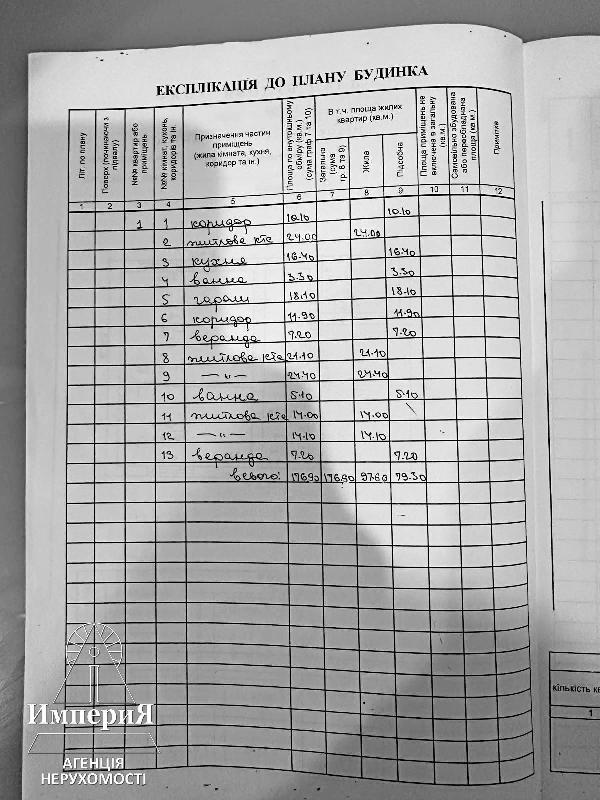 ЕКСПЛІКАЦІЯ ДО ПЛАНУ БУДИНКА
Літ. по плану
Поверх (починаючи з підвалу)
№№ квартир або приміщень
№№ кімнат, кухонь, коридорів та ін.
Призначення частин приміщень (жила кімната, кухня, коридор та ін.)
Площа по внутрішньому обміру (кв.м.) (сума граф 7 та 10)
В т.ч. площа жилих квартир (кв.м.)
Загальна (сума гр. 8 та 9)
Жила
Підсобна
Площа приміщень не включена в загальну (кв.м.)
Самовільно збудована або переобладнана площа (кв.м.)
Примітка
1 2 3 4 5 6 7 8 9 10 11 12
1 1 коридор 10.10 10.10
2 житлова кта 24.00 24.00
3 кухня 16.40 16.40
4 ванна 3.30 3.30
5 гараж 18.10 18.10
6 коридор 11.90 11.90
7 веранда 7.20 7.20
8 житлова кта 21.10 21.10
9 —"— 24.40 24.40
10 ванна 5.10 5.10
11 житлова кта 14.00 14.00
12 —"— 14.10 14.10
13 веранда 7.20 7.20
всього: 176.90 176.90 97.60 79.30
кількість кв
1
ИмпериЯ
АГЕНЦІЯ
НЕРУХОМОСТІ